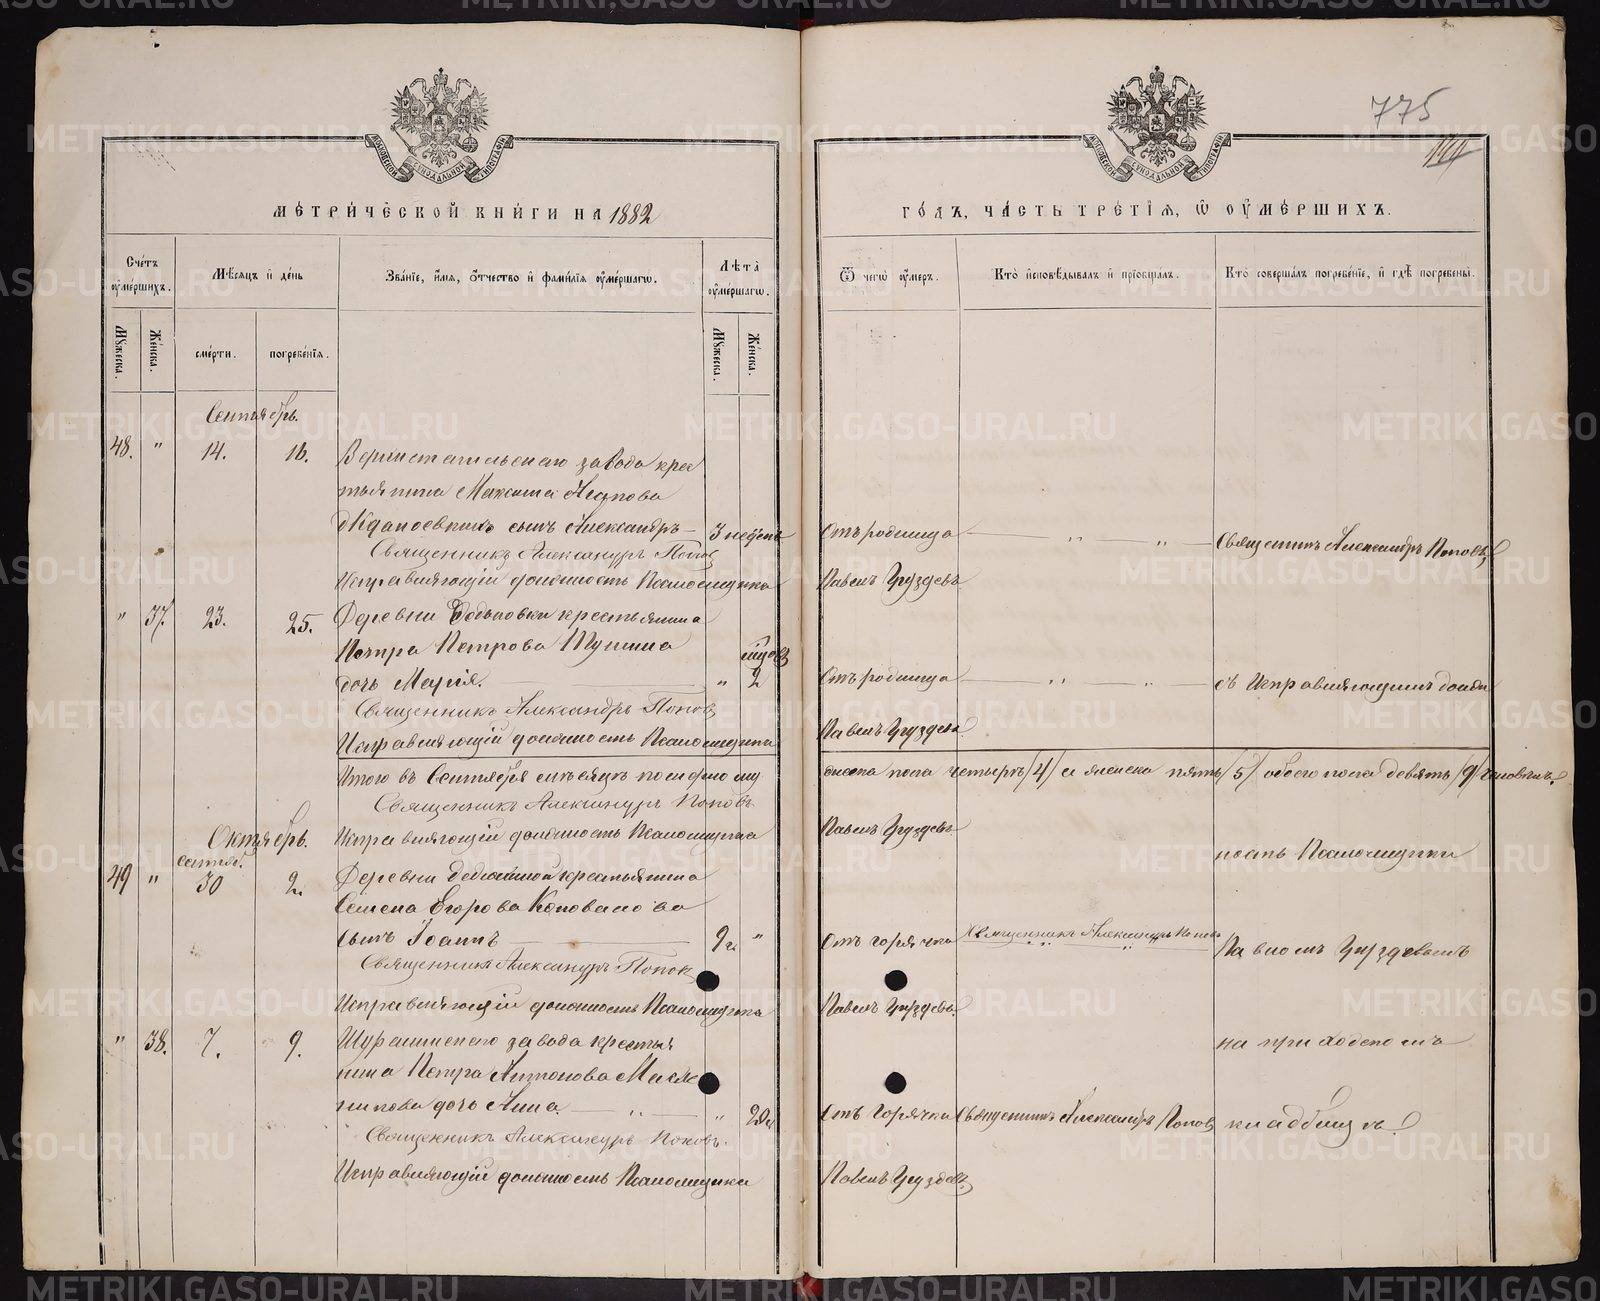 775
144
МОСКОВСКОЙ СѴНОДАЛЬНОЙ ТИПОГРАФІИ
МОСКОВСКОЙ СѴНОДАЛЬНОЙ ТИПОГРАФІИ
МЕТРИЧЕСКОЙ КНИГИ НА 1882
ГОДЪ, ЧАСТЬ ТРЕТІЯ, Ѿ ОУМЕРШИХЪ.
Счетъ оумершихъ.
Мѣсяцъ и день
Званіе, имя, отчество и фамилія оумершагѡ.
Лѣта оумершагѡ.
Ѿ чегѡ оумеръ.
Кто исповѣдывалъ и пріобщалъ.
Кто совершалъ погребеніе, и гдѣ погребены.
Мужеска.
Женска.
смерти.
погребенія.
Мужеска.
Женска.
Сентябрь.
48. " 14. 16. завода крес
тьянина Максима
сынъ Александръ 3 недѣль Отъ родимца " " Священникъ Александръ Поповъ
Священникъ Александръ Поповъ
Исправляющій должность Псаломщика Павелъ Груздевъ
" 37. 23. 25. Деревни крестьянина
Петра Петрова
дочь Марія. " 2 Отъ родимца " " съ Исправляющимъ долж
Священникъ Александръ Поповъ
Исправляющій должность Псаломщика Павелъ Груздевъ
Итого въ Сентябрѣ мѣсяцѣ померло му жеска пола четыре /4/ а женска пять /5/ обоего пола девять /9/ человѣкъ.
Священникъ Александръ Поповъ
Октябрь. Исправляющій должность Псаломщика Павелъ Груздевъ
ность Псаломщика
сентяб.
49 " 30 2. Деревни крестьянина
Семена Егорова Коновалова
сынъ Іоаннъ 9 г. " Отъ горячки Священникъ Александръ Поповъ Павломъ Груздевымъ
Священникъ Александръ Поповъ
Исправляющій должность Псаломщика Павелъ Груздевъ
" 38. 7. 9. завода крестья на приходскомъ
нина Петра Антонова Мася
никова дочь Анна " " Отъ горячки Священникъ Александръ Поповъ кладбищѣ.
Священникъ Александръ Поповъ.
Исправляющій должность Псаломщика Павелъ Груздевъ
METRIKI.GASO-URAL.RU